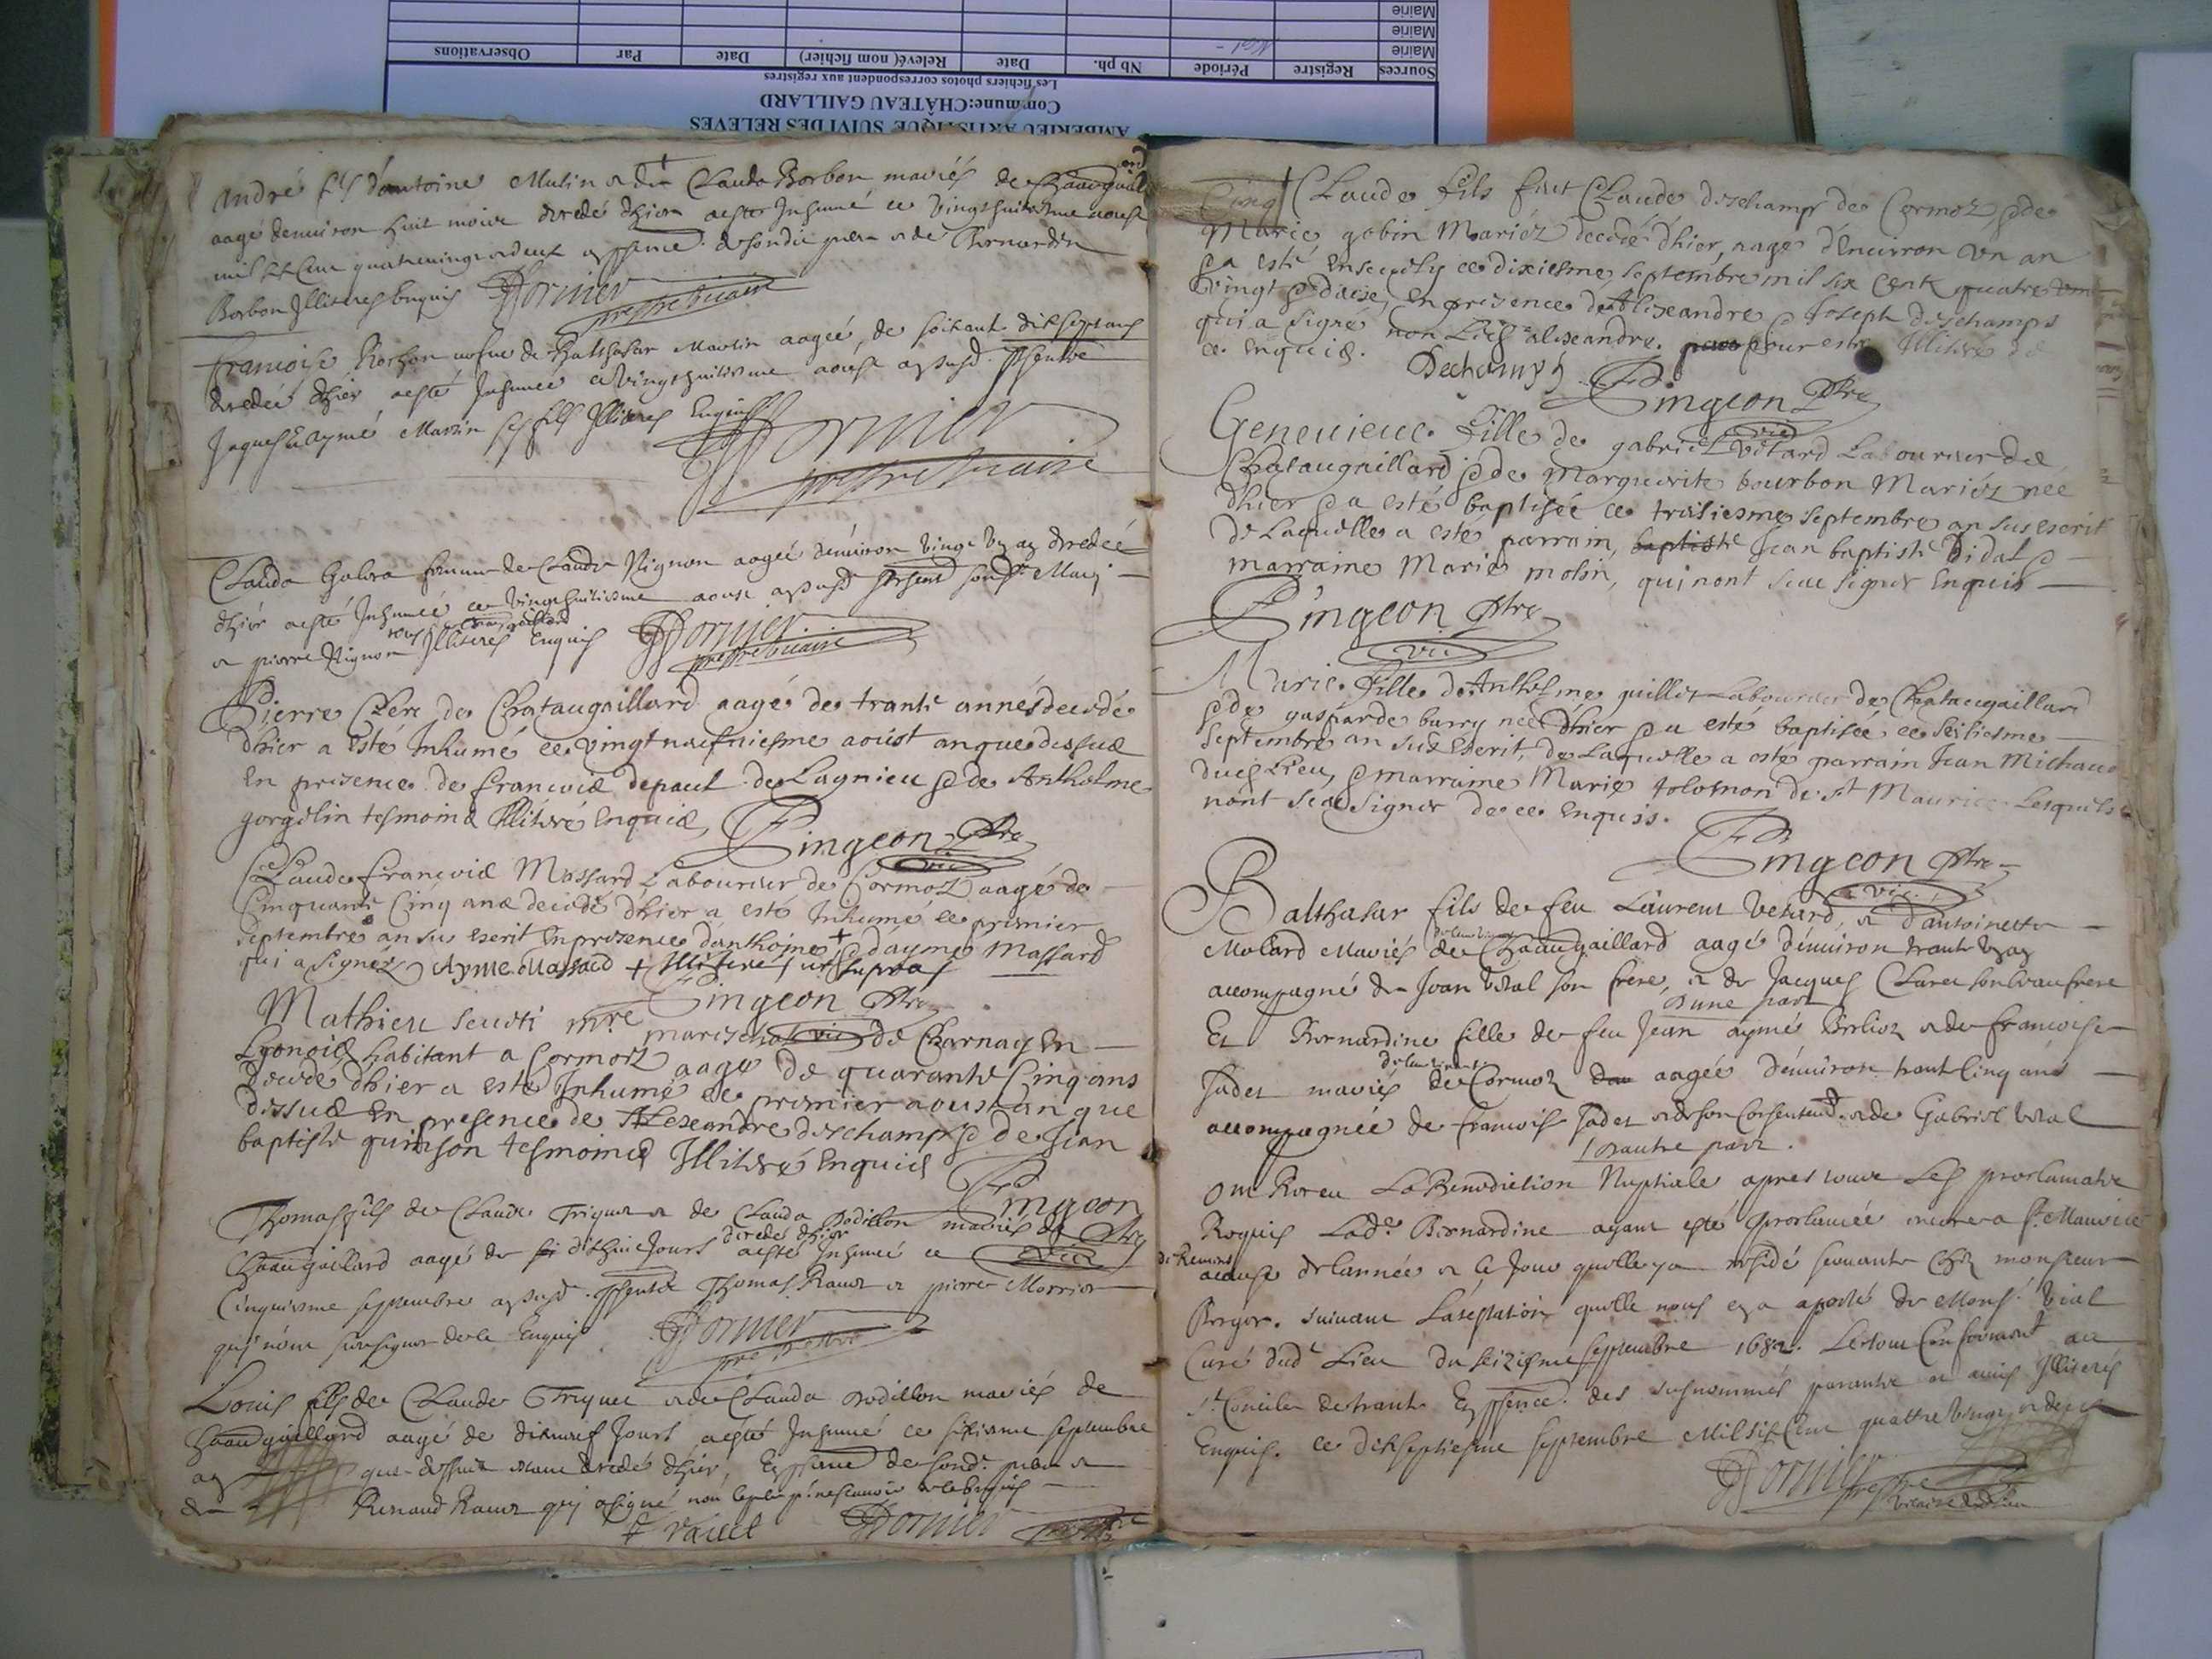 Mairie
Mairie
Mairie
Sources Registre Période Nb ph. Date Relevé( nom fichier) Date Par Observations
Les fichiers photos correspondent aux registres
Commune:CHÂTEAU GAILLARD
AMBERIEU ARTISTIQUE SUIVI DES RELEVES
André fils d'antoine Mulin & de Clauda Borbon mariés de Chaugaillard
aagé denuiron huit mois decedé dhier a esté Inhumé ce vingthuitiesme aoust
mil six Cent quatrevingt & deux
Borbon Illiteres Enquis Dornier
prestre vicaire
francoise Rochon vefue de Balthasar Martin aagée, de soixante dixsept ans
decedée dhier a esté Inhumée ce vingthuitiesme aoust
Jaques & Aymé Martin ses fils Illiteres Enquis
Dornier
prestre vicaire
Clauda Galora femme de Claude Nignon aagée denuiron vingt decedée
dhier a esté Inhumée ce vingthuitiesme aoust Mary
& pierre Nignon Illiteres Enquis Dornier
prestre vicaire
Pierre Clerc de Chataugaillard aagé de trante années decedé
dhier a esté Inhumé ce vingt neufuiesme aoust an que dessus
En presence de francois depaul de Lagnieu & de Antholme
gorgelin tesmoins Illiteré Enquis
Pingeon Ptre
vic
Claude francois Massard Labourier de Cormoz aagé de
Cinquante Cinq ans decedé dhier a esté Inhumé ce premier
Septembre an sus escrit En presence danthoine + & dayme Massard
qui a signéz Ayme Massard + Illiteré ut supra
Pingeon Ptre
Mathieu mre marischal vic de Charnay En
Lyonois habitant a Cormoz aagé de quarante Cinq ans
decedé dhier a esté Inhumé ce premier aoust an que
dessus En presence de Alexandre deschamps & de Jean
baptiste quinson tesmoins Illiteré Enquis
Pingeon
Ptre
vic
Thomas fils de Claude Triquet & de Clauda Bodillon mariés de
decedé dhier
Chaugaillard aagé de dixhuit Jours a esté Inhumé ce
Cinquiesme septembre Thomas Rauet & pierre Morrier
qui nont sceu signer de ce Enquis Dornier
prestre
Louis fils de Claude Triquet & de Clauda Bodillon mariés de
Chaugaillard aagé de dixneuf Jours a esté Inhumé ce sixiesme septembre
que dessus decedé dhier, En presence de sond. pere &
de Renaud Rauet qui a signé non le pere
rauet Dornier
Claude fils feut Claude deschamps de Cormoz & de
Marie gobin Mariéz decedé dhier, aagé d'Enuiron vn an
& a esté Enseuely ce dixiesme septembre mil six Cent quatre
vingt & deux, en presence de Alexandre & Joseph deschamps
qui a signé non Led. alexandre. pour estre Illiteré de
ce Enquis. Dechamps
Pingeon Ptre
vic
Geneuieue fille de gabriel vetard Labourier de
Chataugaillard & de Marguerite bourbon Mariéz née
dhier & a esté baptisée ce troisiesme septembre an sus escrit
de Laquelle a esté parrain, baptiste Jean baptiste Vidal &
marraine Marie molin, qui nont sceu signer Enquis
Pingeon Ptre
vic
Marie fille de Anthelme guillot Labourier de Chataugaillard
& de gasparde barry née dhier & a esté baptisée ce seiziesme
Septembre an sus Escrit, de Laquelle a esté parrain Jean Michaud
dud. Lieu, & marraine Marie tolomon de st Maurice Lesquels
nont sceu signer de ce Enquis.
Pingeon Ptre
vic
Balthasar fils de feu Laurent Vetard, & d'antoinette
Molard Mariés de Chaugaillard aagé d'enuiron trante
accompagné de Jean Vial son frere, & de Jacques Claret son beaufrere
d'une part
Et Bernardine fille de feu Jean aymé Berlioz & de francoise
Jadet mariés de Cormoz aagée d'enuiron trante Cinq ans
accompagnée de francois Jadet & de son Consentement & de Gabriel Vial
d'autre part.
Ont Receu La Benediction Nuptiale apres toute Les proclamations
Requis Lade. Bernardine ayant esté proclamée encore a st. Maurice
de Remens a cause de lannée & le Jour quelle y a residé seruante chez monsieur
Berger. suiuant Lattestation quelle nous en a aporté de Mons. Vial
Curé dudt Lieu du seiziesme septembre 1682. Le tout Conformement au
st. Concile de trante En presence des susnommés parants & amis Illiterés
Enquis. ce dixseptiesme septembre Mil six Cent quattre vingt & deux
Dornier
prestre
vicaire dud. lieu